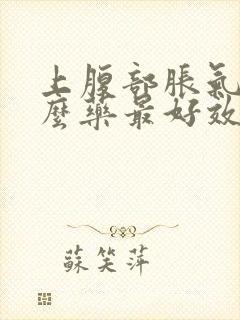 上腹部脹氣
麼藥最好效
蘇笑萍